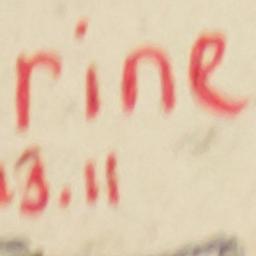 rine
13.11